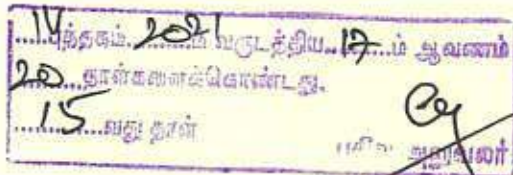 IV புத்தகம் 2021 ம் வருடத்திய 17 ம் ஆவணம்
20 தாள்களைக்கொண்டது.
15 வது தாள்
பதிவு அலுவலர்